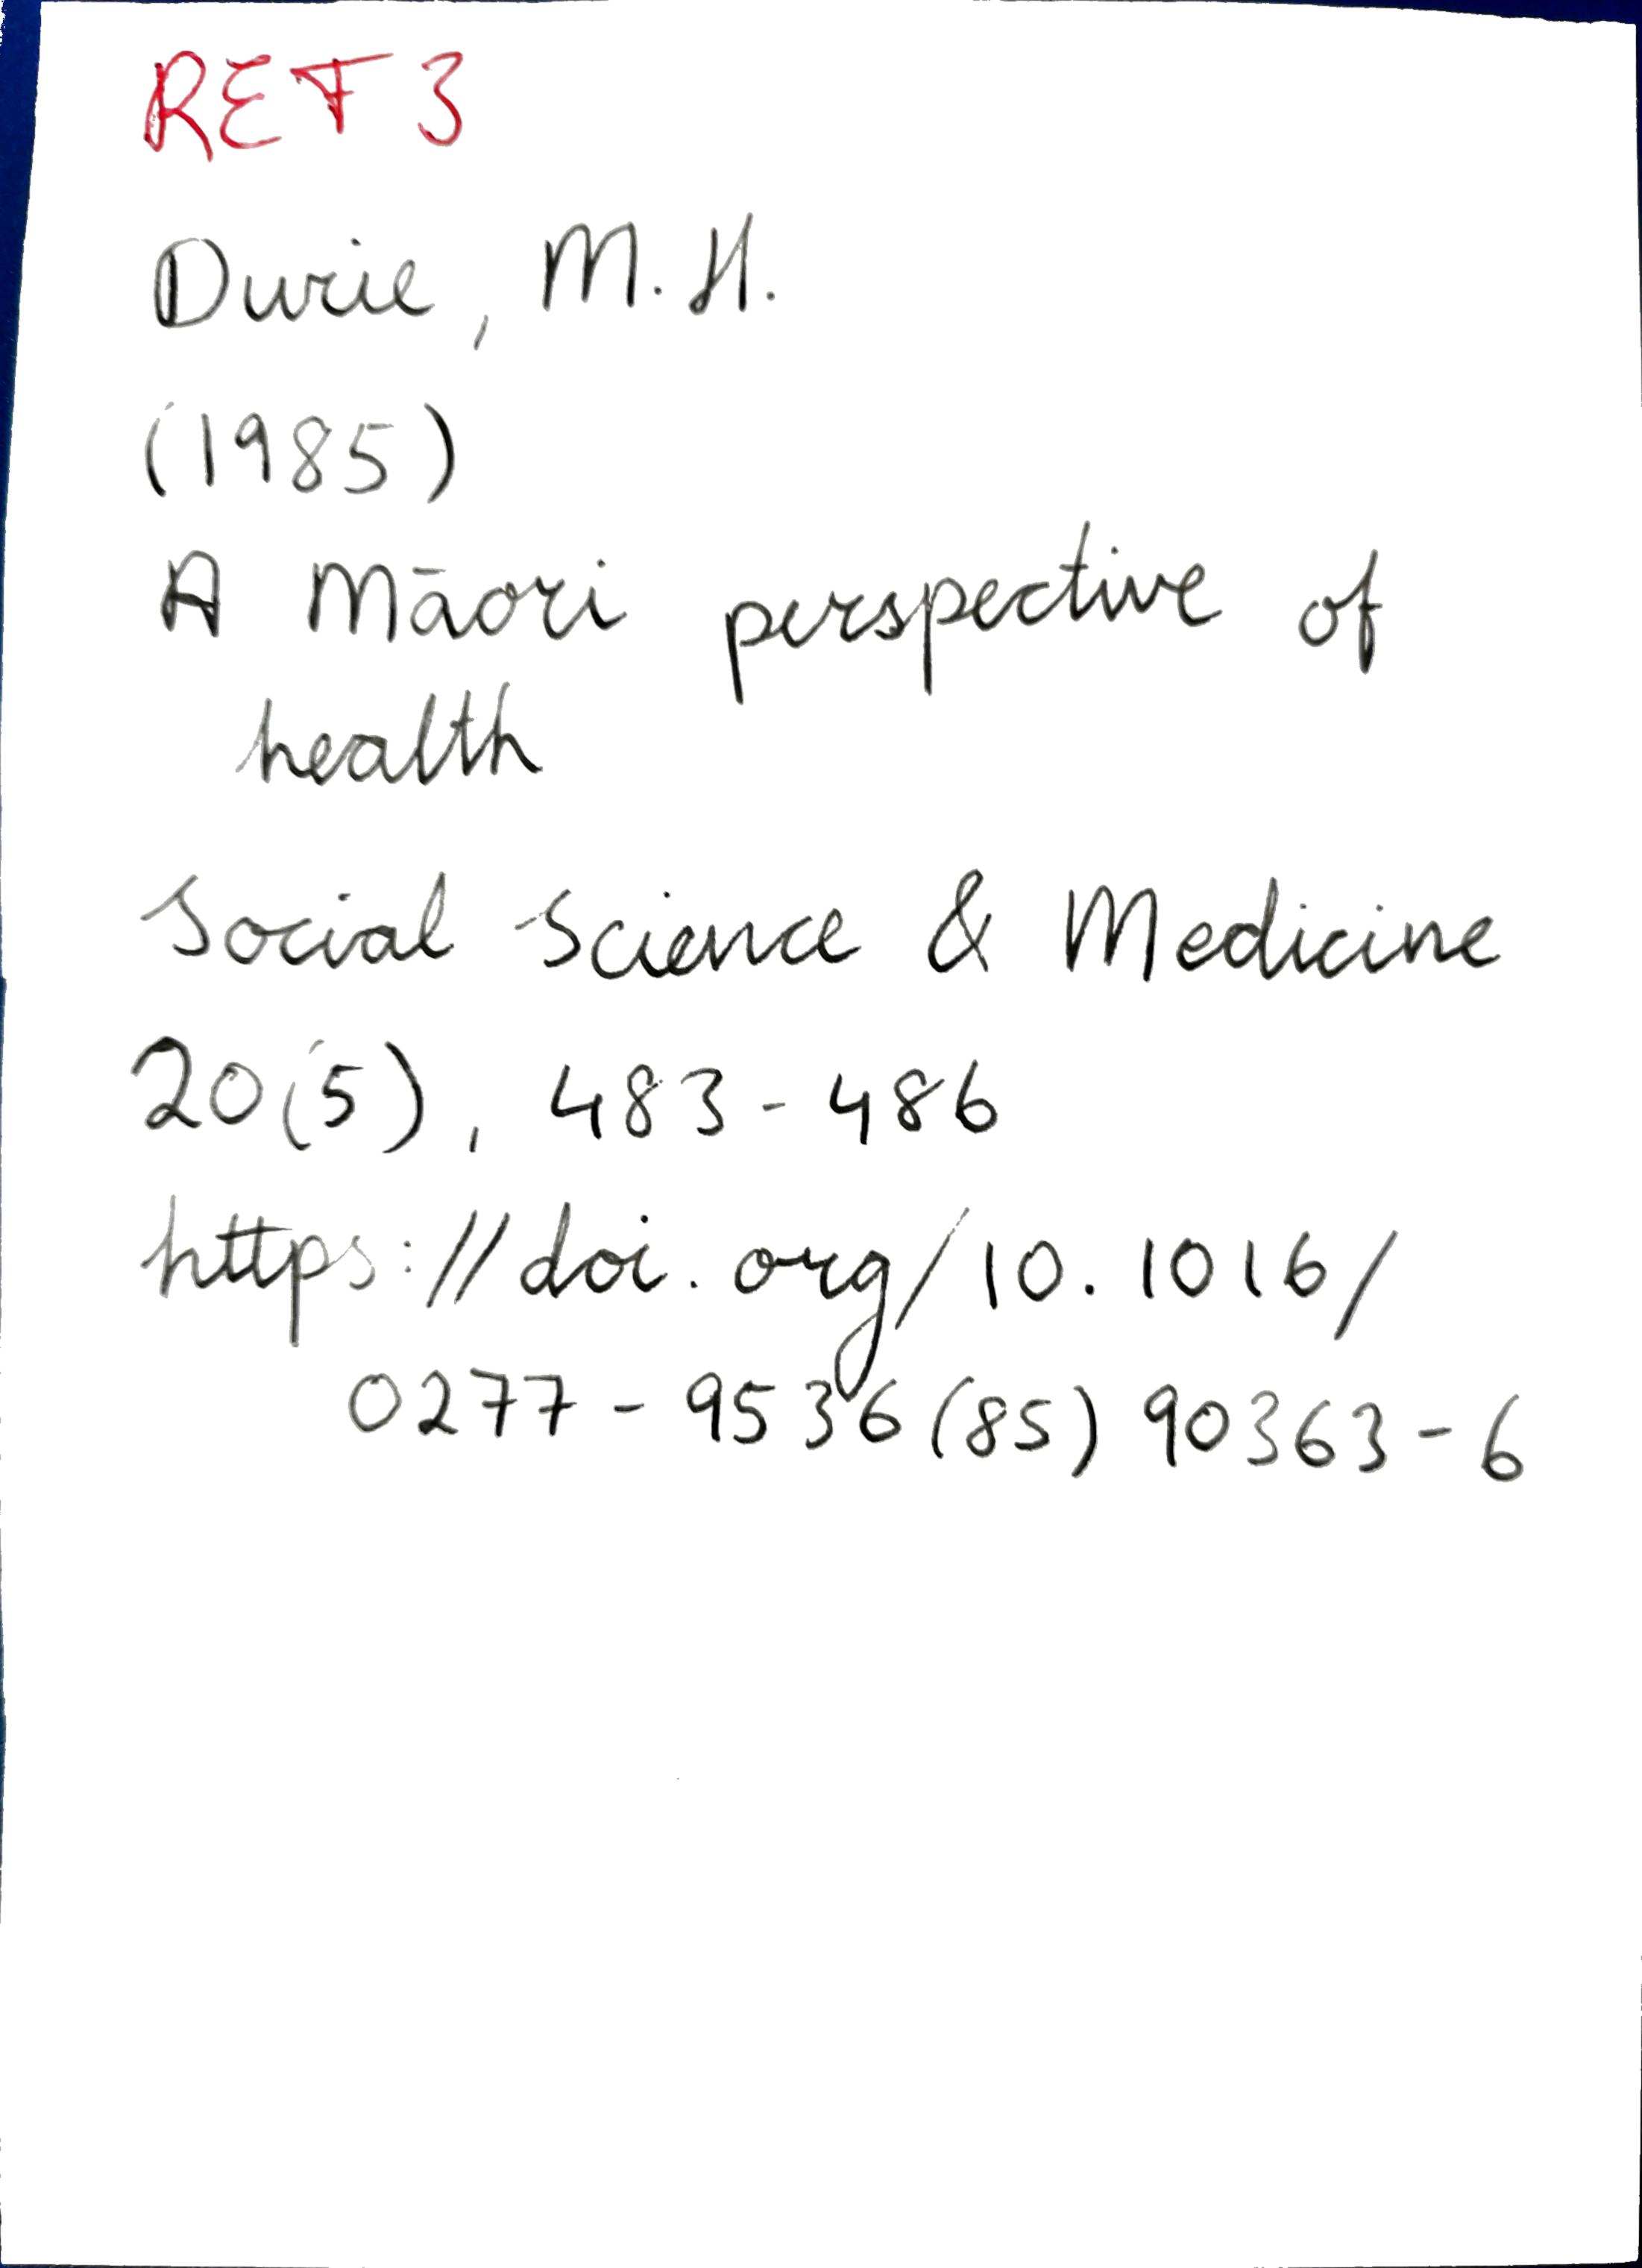 REF 3
Durie, M.H.
(1985)
A Māori perspective of
health
Social Science & Medicine
20(5), 483-486
https://doi.org/10.1016/
0277-9536(85)90363-6